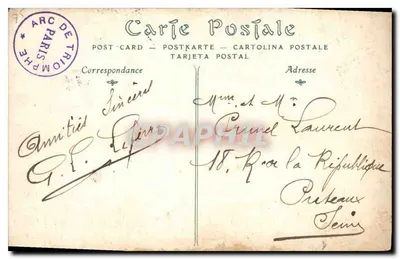 ★ ARC DE TRIOMPHE ★
PARIS
Carte Postale
POST CARD — POSTKARTE — CARTOLINA POSTALE
TARJETA POSTAL
Correspondance
Adresse
Amitiés Sincères
G. L.
Mme et Mr
Laurent
18, R de la République
Puteaux
Seine